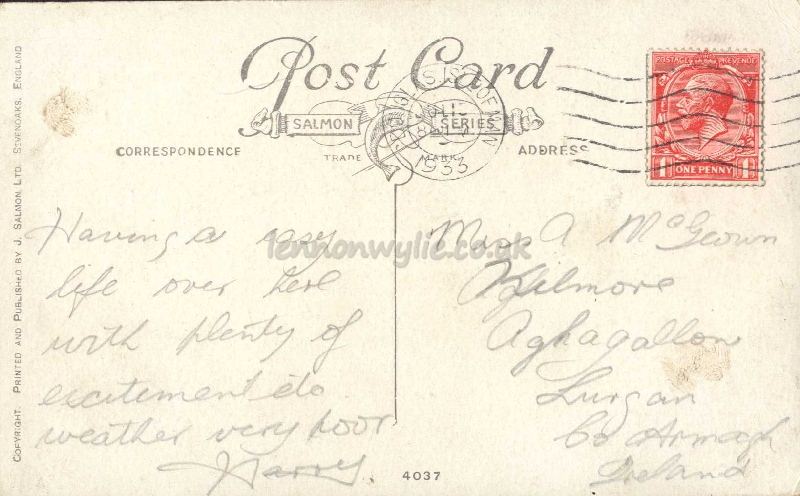 Post Card
SALMON SERIES
TRADE MARK
CORRESPONDENCE
ADDRESS
DOUGLAS ISLE OF MAN
1933
POSTAGE REVENUE
1 ONE PENNY 1
COPYRIGHT. PRINTED AND PUBLISHED BY J. SALMON LTD. SEVENOAKS, ENGLAND
Having a easy
life over here
with plenty of
excitement etc
weather very poor
Harry
Miss A McGeown
Kilmore
Aghagallon
Lurgan
Co Armagh
Ireland
4037
lennonwylie.co.uk